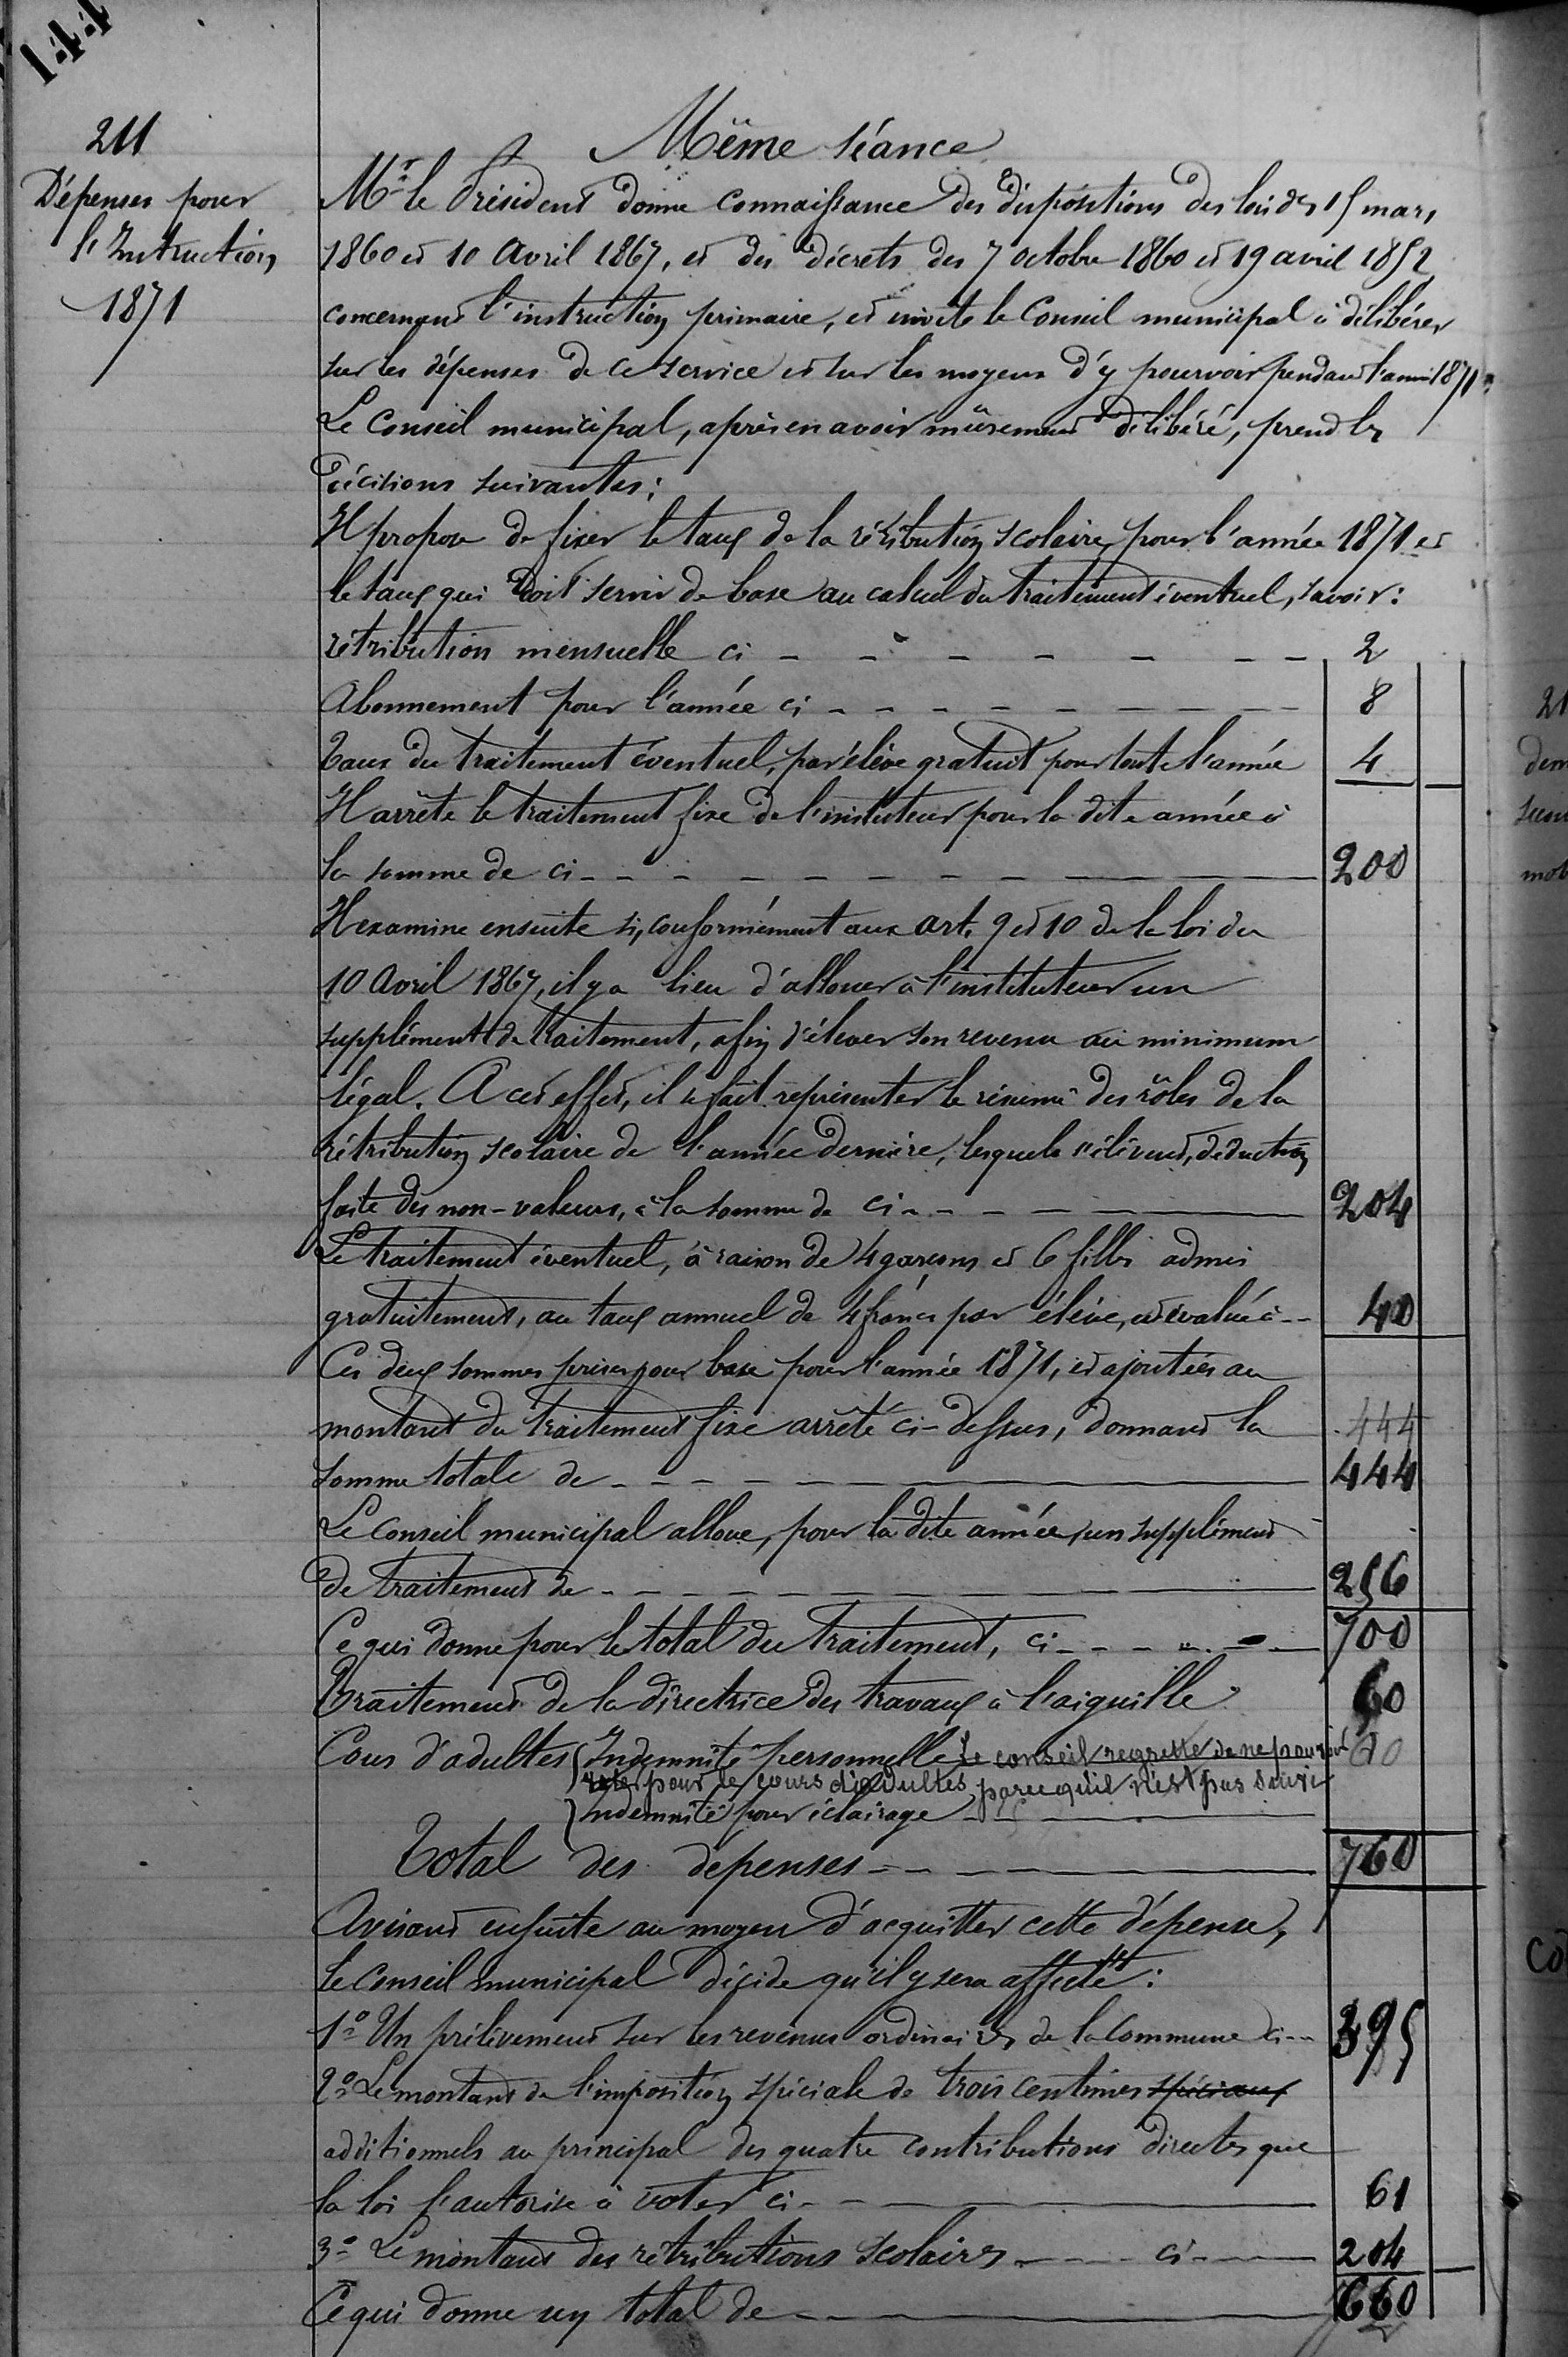 144
211
Dépenses pour
l'Intruction
1871
Même séance
Mr le Président donne connaissance des dispositions des lois des 15 mars
1860 et 10 Avril 1867, et des décrets des 7 octobre 1860 et 19 avril 1852
concernant l'instruction primaire, et invite le Conseil municipal à délibérer
sur les dépenses de ce service et sur les moyens d'y pourvoir pendant l'année 1871.
Le Conseil municipal, après en avoir mûrement délibéré, prend les
décisions suivantes :
Il propose de fixer le taux de la rétribution scolaire, pour l'année 1871 et
le taux qui doit servir de base au calcul du traitement éventuel, savoir :
rétribution mensuelle ci - - - - - - - 2
Abonnement pour l'année ci - - - - - - - 8
Taux du traitement éventuel, par élève gratuit pour toute l'année 4
Il arrête le traitement fixe de l'instituteur pour la dite année à
la somme de ci - - - - - - - 200
Il examine ensuite si, conformément aux art. 9 et 10 de la loi du
10 Avril 1867, il y a lieu d'allouer à l'instituteur un
supplément de traitement, afin d'élever son revenu au minimum
légal. A cet effet, il se fait représenter le résumé des rôles de la
rétribution scolaire de l'année dernière, lesquels s'élèvent, déduction
faite des non-valeurs, à la somme de ci - - - - 204
Le traitement éventuel, à raison de 4 garçons et 6 filles admis
gratuitement, au taux annuel de 4 francs par élève, est évalué à - - 40
Ces deux sommes prises pour base pour l'année 1871, et ajoutées au
montant du traitement fixe arrêté ci-dessus, donnant la 444
somme totale de - - - - 444
Le Conseil municipal alloue, pour la dite année, un supplément
de traitement de - - - - - 256
Ce qui donne pour le total du traitement, ci - - - - 700
Traitement de la directrice des travaux à l'aiguille 60
Cours d'adultes Indemnité personnelle Le conseil regrette de ne pouvoir 60
voter pour le cours d'adultes parcequ'il n'est pas suivi
Indemnité pour éclairage - -
Total des dépenses - - - 760
Avisant ensuite au moyen d'acquitter cette dépense,
le Conseil municipal décide qu'il y sera affecté :
1° Un prélèvement sur les revenus ordinaires de la Commune ci - - 395
2° Le montant de l'imposition spéciale de trois centimes spéciaux
additionnels au principal des quatre contributions directes que
la loi l'autorise à voter ci - - 61
3° Le montant des rétributions scolaires - - - ci - - 204
Ce qui donne un total de - - - 660